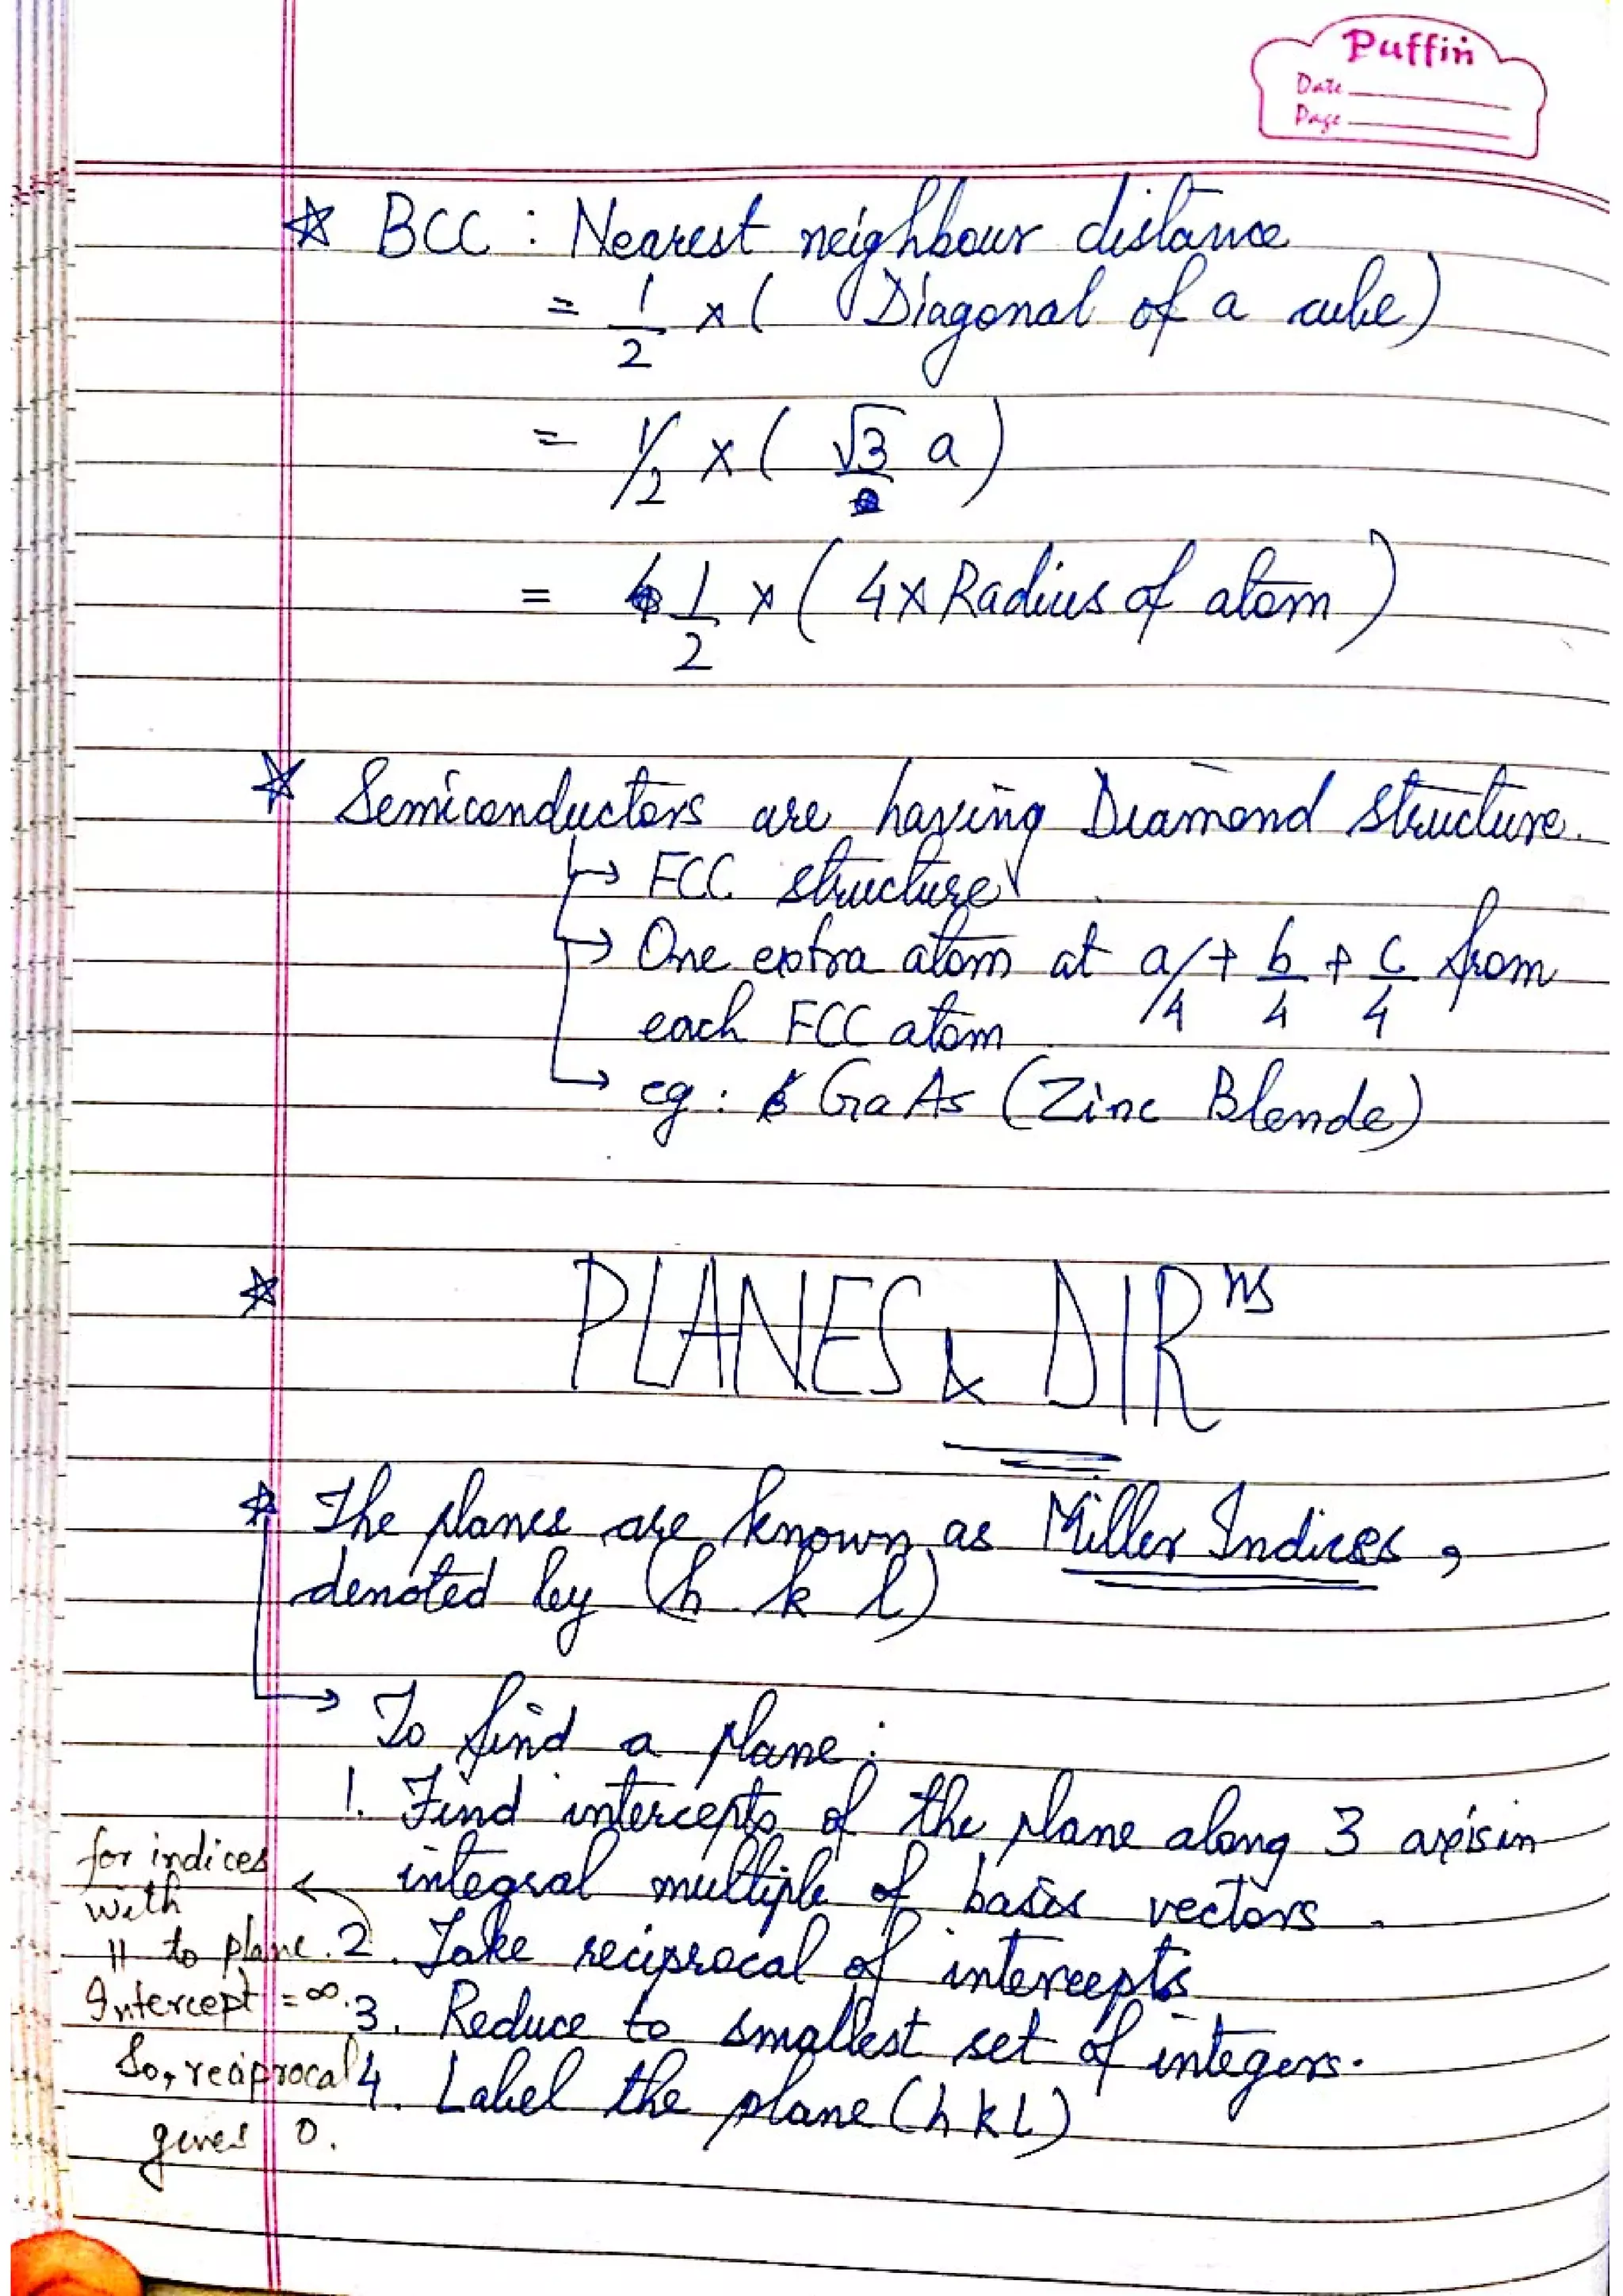 Puffin
Date
Page
☆ BCC : Nearest neighbour distance
= 1/2 × ( Diagonal of a cube)
= 1/2 × ( √3 a)
= 1/2 × ( 4 × Radius of atom )
☆ Semiconductors are having Diamond structure.
→ FCC structure
→ One extra atom at a/4 + b/4 + c/4 from
each FCC atom
→ eg : GaAs (Zinc Blende)
☆ PLANES & DIRⁿˢ
☆ The planes are known as Miller Indices,
denoted by (h k l)
→ To find a plane :
1. Find intercepts of the plane along 3 axis in
integral multiple of basis vectors.
2. Take reciprocal of intercepts
3. Reduce to smallest set of integers.
4. Label the plane (h k l)
for indices
with
|| to plane.
Intercept = ∞.
So, reciprocal
gives 0.